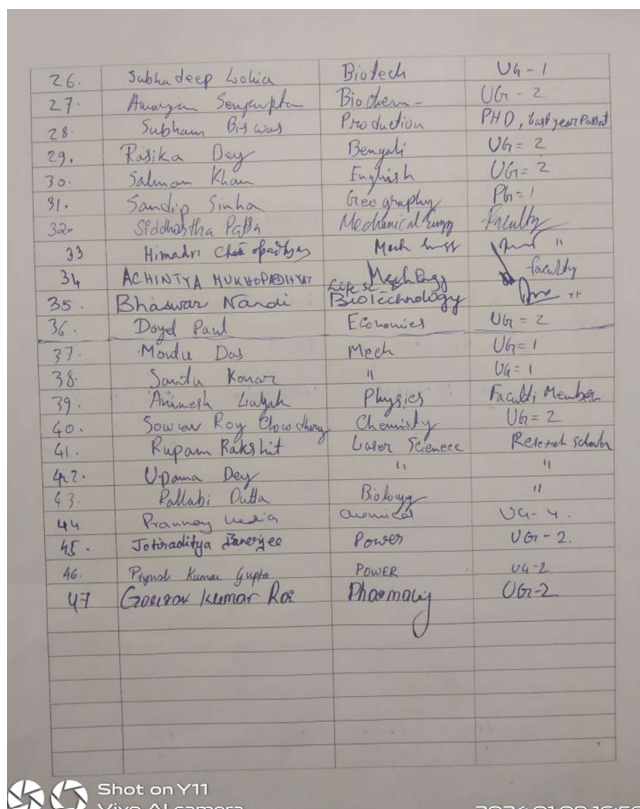 26. Subhadeep Lohia Biotech UG-1
27. Sengupta Biochem- UG-2
28. Subham Biswas Production PHD, Last year
29. Rasika Dey Bengali UG=2
30. Salman Khan English UG=2
31. Sandip Sinha Geography PG=1
32. Siddhartha Patra Mechanical Engg Faculty
33 Himadri Chattopadhyay Mech Engg "
34 ACHINTYA MUKHOPADHYAY Mech Engg faculty
35. Bhaswar Nandi Life sc & Biotechnology "
36. Doyel Paul Economics UG=2
37. Moutu Das Mech UG=1
38. Santu Konar " UG=1
39. Animesh Physics Faculti Member
40. Sourav Roy Chowdhury Chemistry UG=2
41. Rupam Rakshit Laser Science Reserch scholar
42. Upama Dey " "
43. Pallabi Dutta Biology "
44 Chemical UG-4.
45. Jotiraditya Banerjee Power UG-2.
46. Kumar Gupta POWER UG-2
47 Gourav Kumar Roi Pharmacy UG-2
Shot on Y11
Vivo AI camera